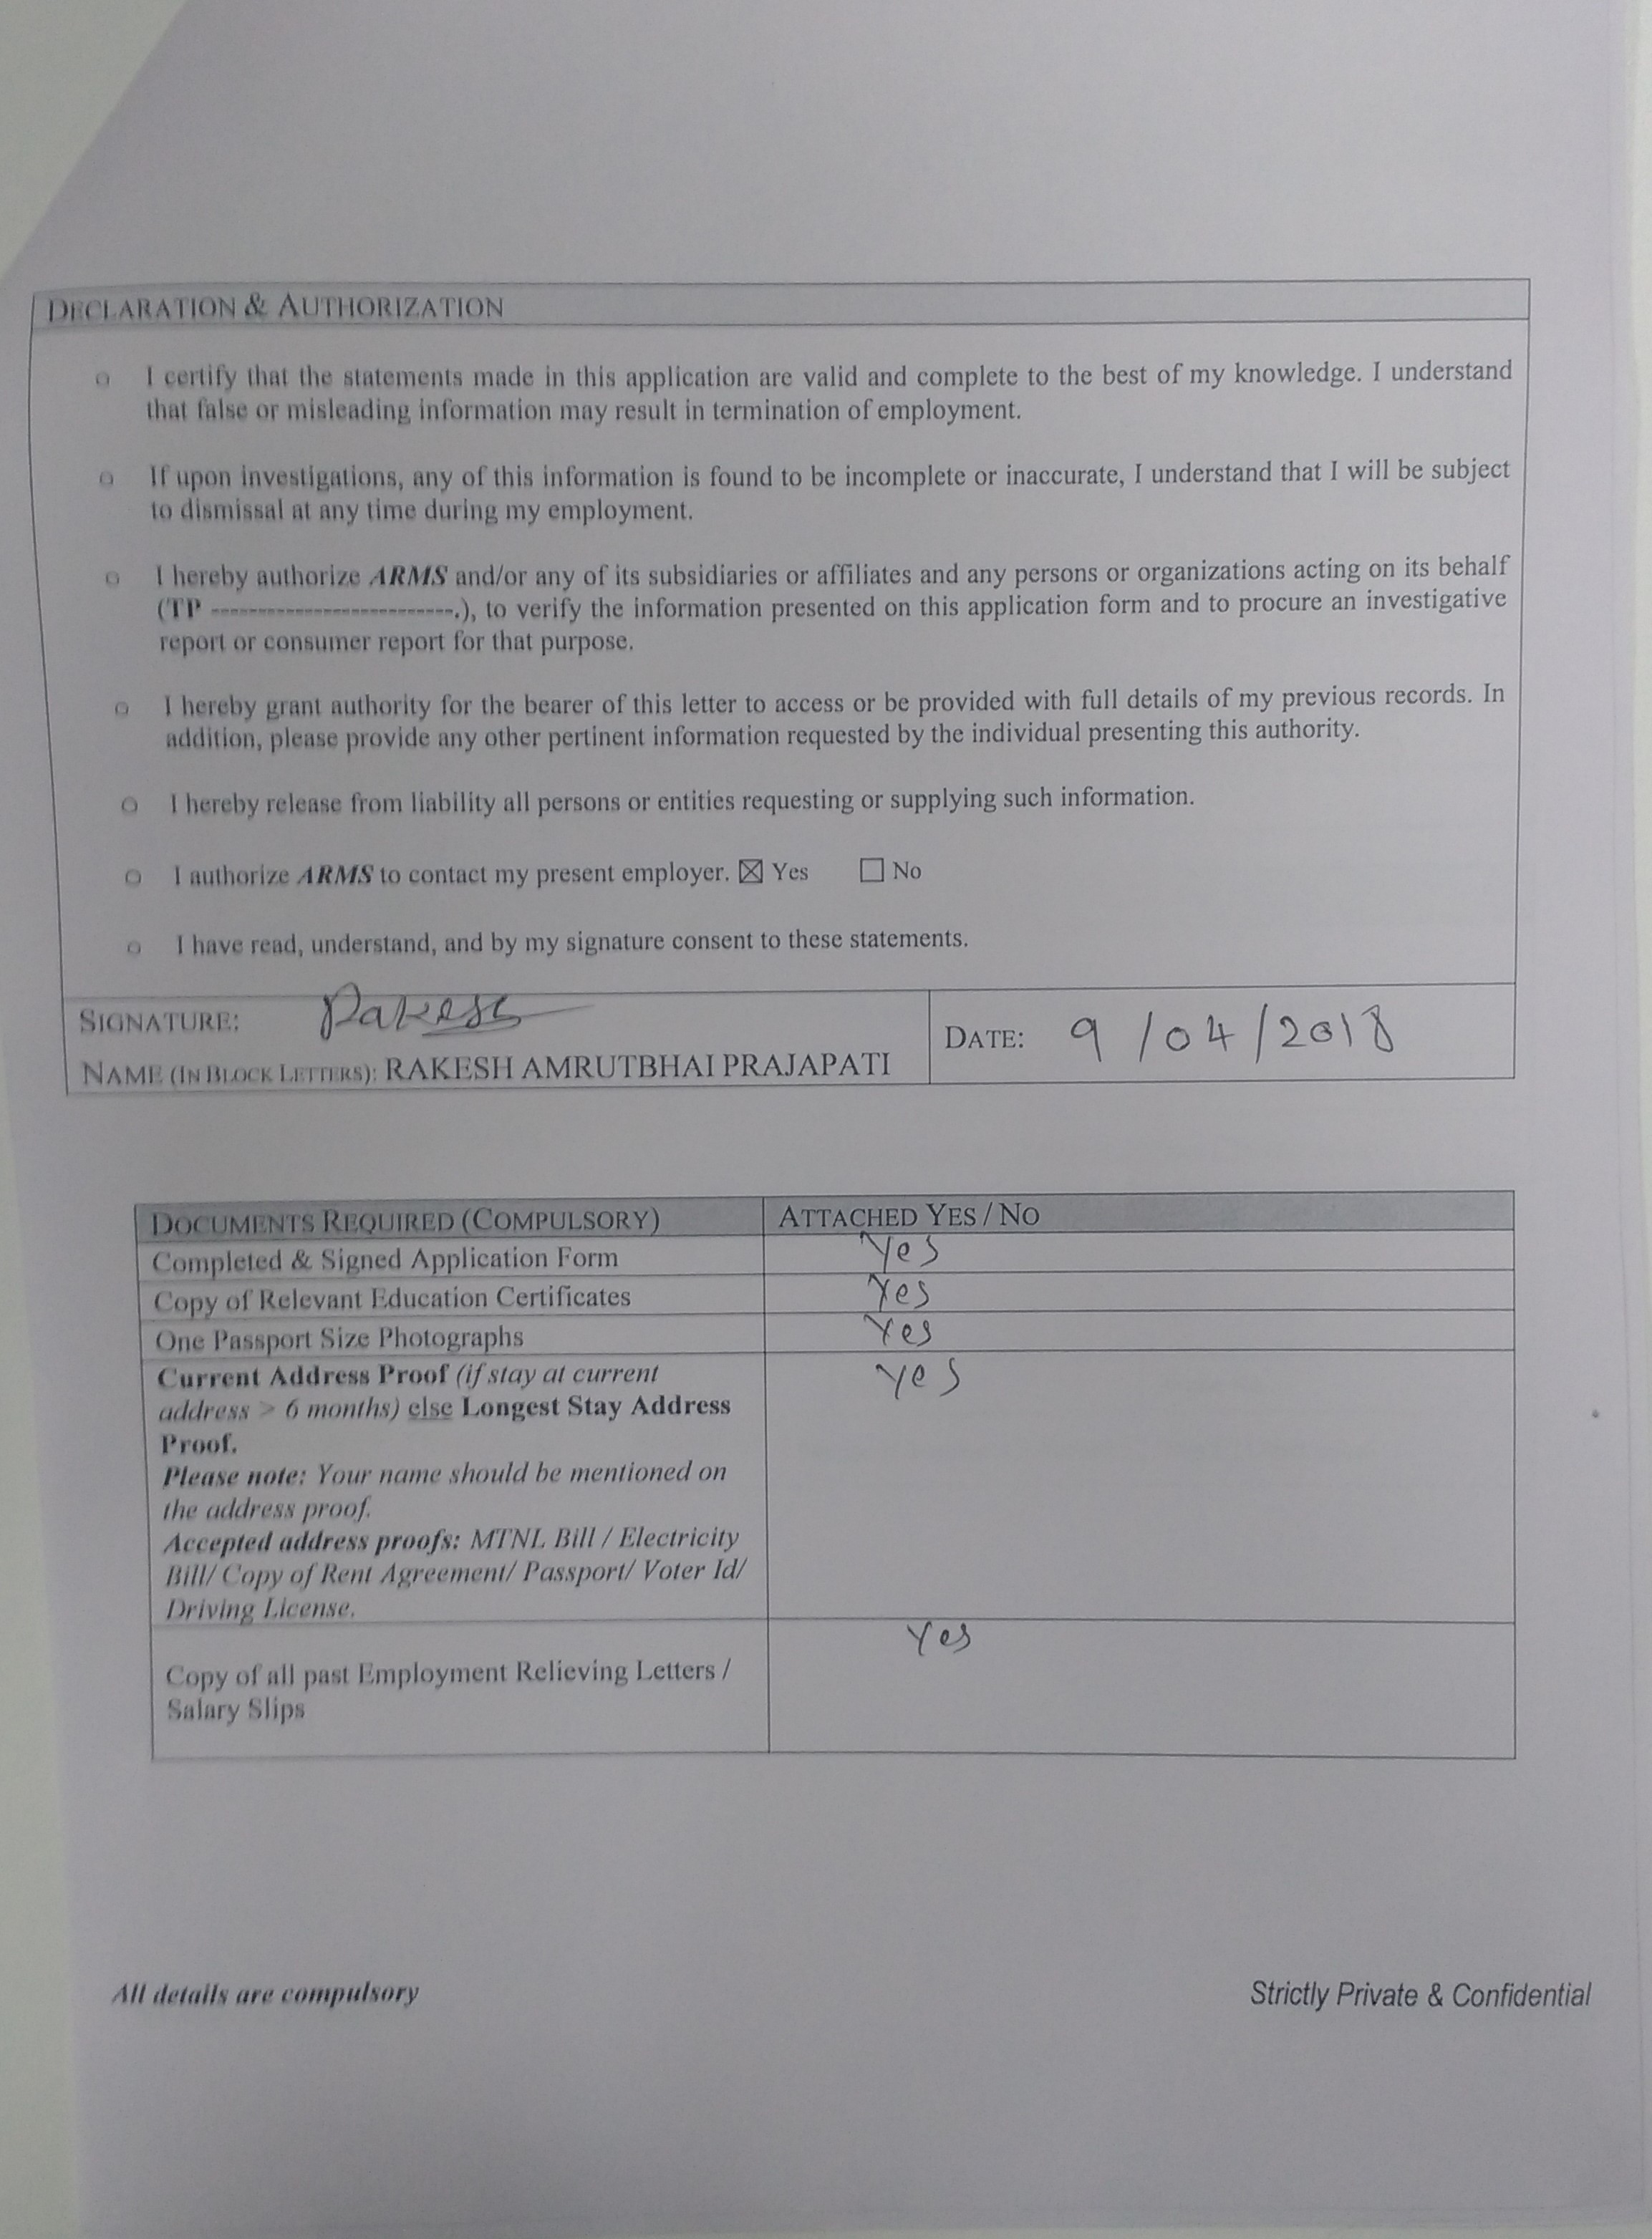 DECLARATION & AUTHORIZATION
o I certify that the statements made in this application are valid and complete to the best of my knowledge. I understand
that false or misleading information may result in termination of employment.
o If upon investigations, any of this information is found to be incomplete or inaccurate, I understand that I will be subject
to dismissal at any time during my employment.
o I hereby authorize ARMS and/or any of its subsidiaries or affiliates and any persons or organizations acting on its behalf
(TP --------------------------.), to verify the information presented on this application form and to procure an investigative
report or consumer report for that purpose.
o I hereby grant authority for the bearer of this letter to access or be provided with full details of my previous records. In
addition, please provide any other pertinent information requested by the individual presenting this authority.
o I hereby release from liability all persons or entities requesting or supplying such information.
o I authorize ARMS to contact my present employer. ☒ Yes ☐ No
o I have read, understand, and by my signature consent to these statements.
SIGNATURE: Rakesh
DATE: 9/04/2018
NAME (IN BLOCK LETTERS): RAKESH AMRUTBHAI PRAJAPATI
DOCUMENTS REQUIRED (COMPULSORY) ATTACHED YES / NO
Completed & Signed Application Form Yes
Copy of Relevant Education Certificates Yes
One Passport Size Photographs Yes
Current Address Proof (if stay at current Yes
address > 6 months) else Longest Stay Address
Proof.
Please note: Your name should be mentioned on
the address proof.
Accepted address proofs: MTNL Bill / Electricity
Bill/ Copy of Rent Agreement/ Passport/ Voter Id/
Driving License.
Yes
Copy of all past Employment Relieving Letters /
Salary Slips
All details are compulsory Strictly Private & Confidential